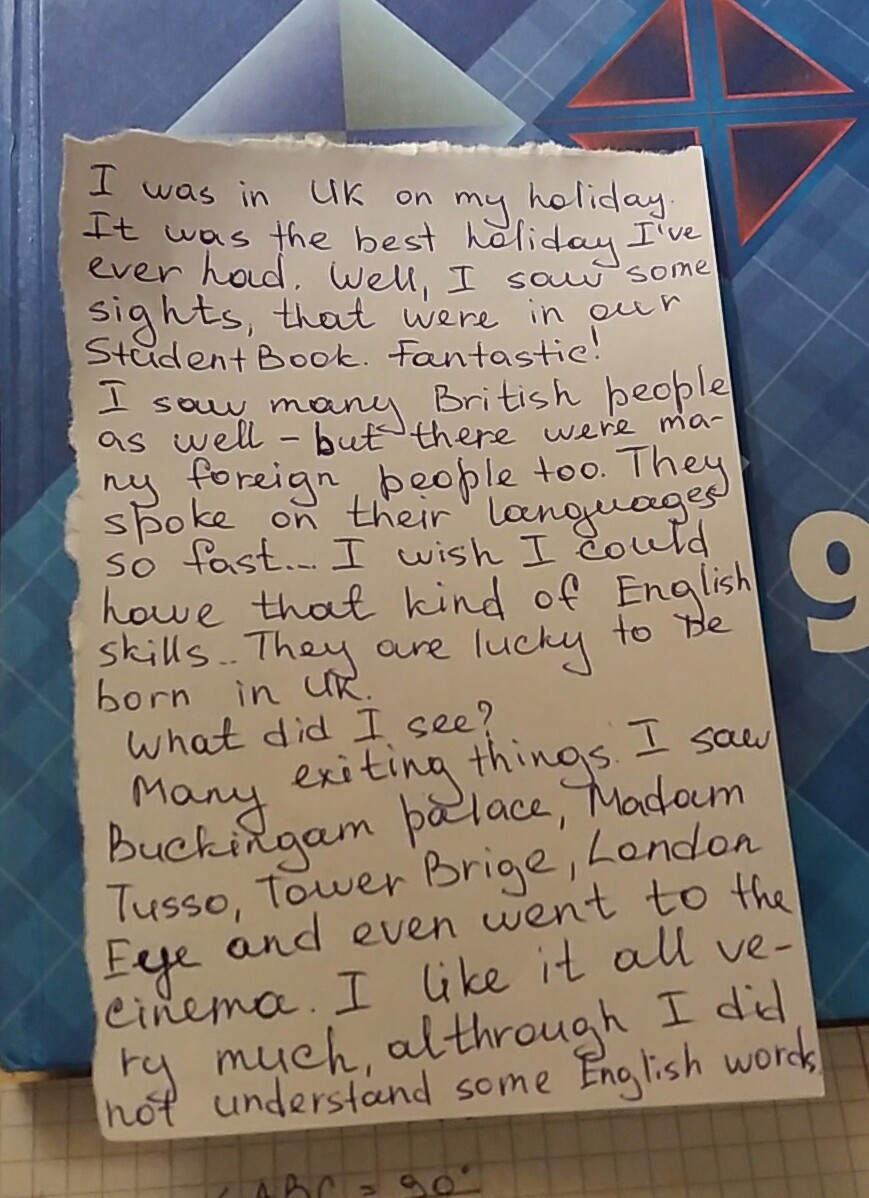 I was in UK on my holiday.
It was the best holiday I've
ever had. Well, I saw some
sights, that were in our
Student Book. Fantastic!
I saw many British people
as well - but there were ma-
ny foreign people too. They
spoke on their languages
so fast... I wish I could
howe that kind of English
skills.. They are lucky to be
born in UK.
What did I see?
Many exiting things. I saw
Buckingam palace, Madam
Tusso, Tower Brige, London
Eye and even went to the
cinema. I like it all ve-
ry much, althrough I did
not understand some English words.
9
∠ABC = 90°